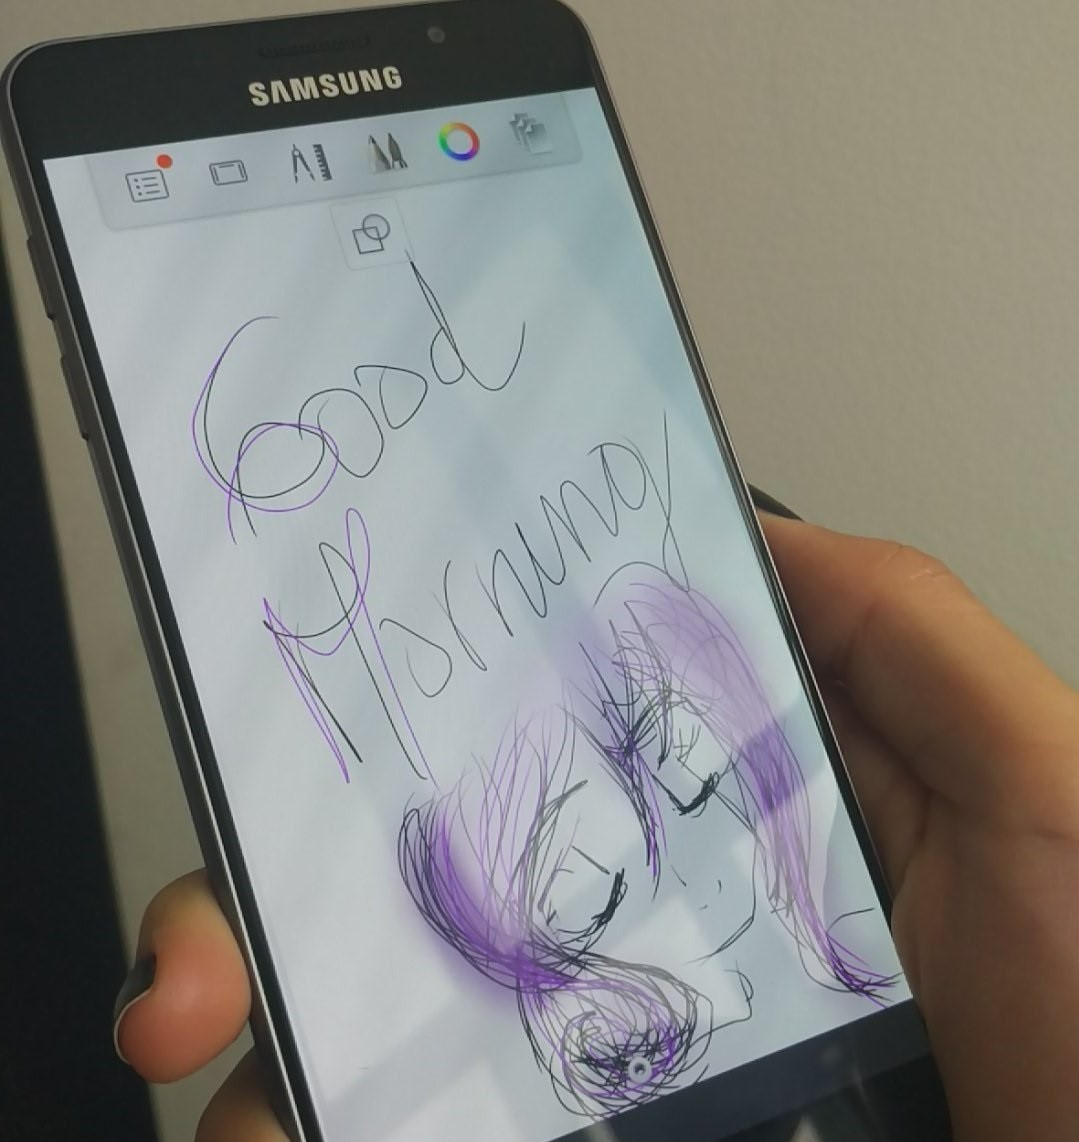 SAMSUNG
Good
Morning